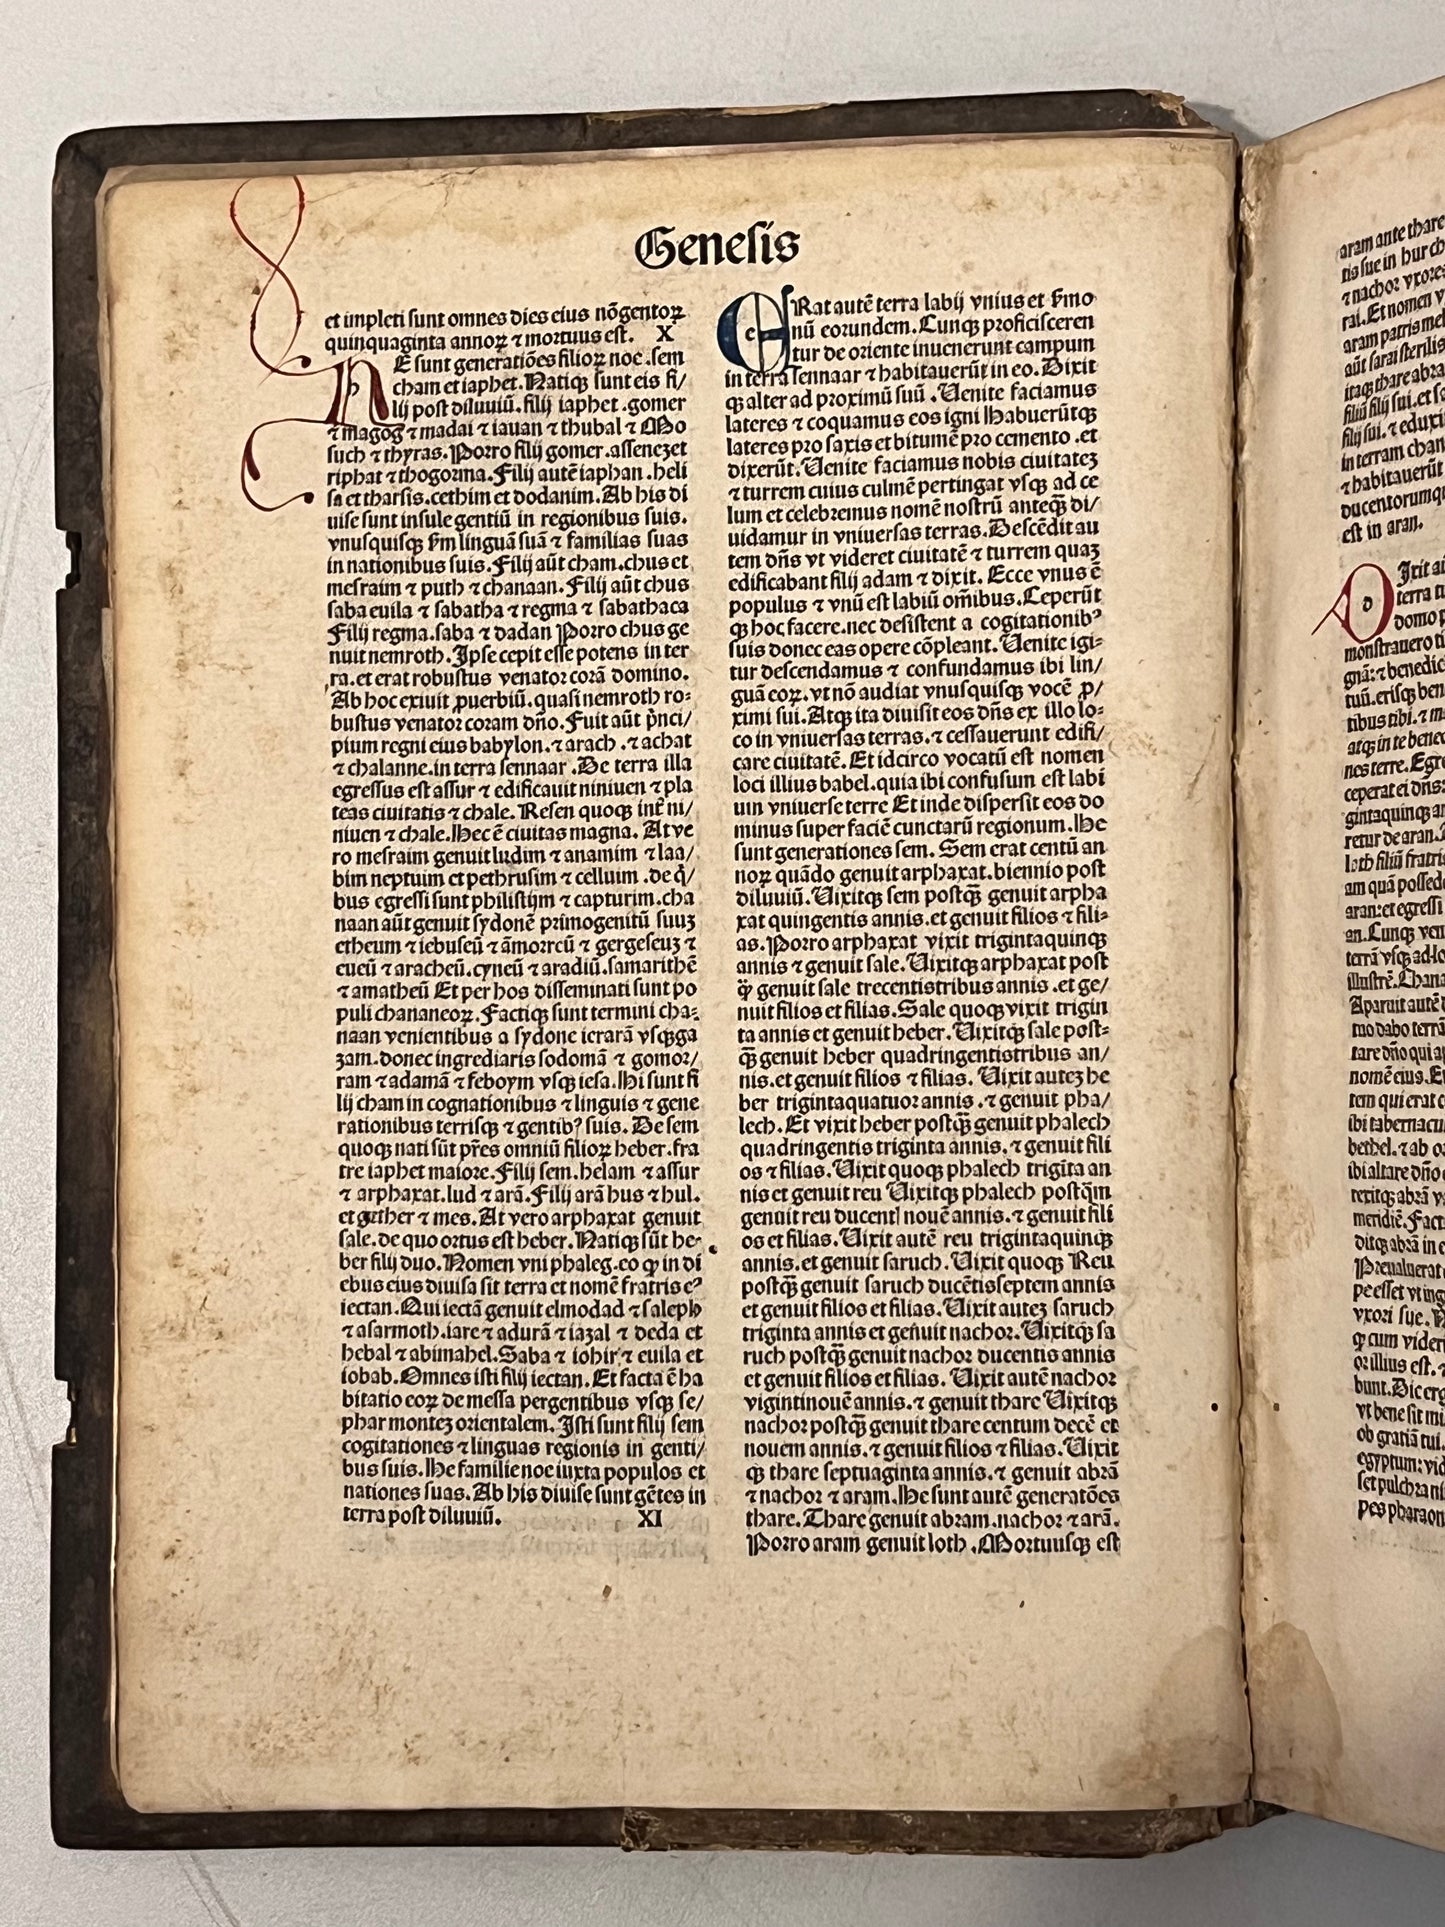 Genesis
et impleti sunt omnes dies eius nõgentoꝝ
quinquaginta annoꝝ ⁊ mortuus est. X
h E sunt generatiões filioꝝ noe .sem
cham et iaphet. Natiqꝫ sunt eis fi/
lij post diluuiũ. filij iaphet .gomer
⁊ magog ⁊ madai ⁊ iauan ⁊ thubal ⁊ Mo
such ⁊ thyras. Porro filij gomer .assenez et
riphat ⁊ thogorma. Filij autẽ iaphan .heli
sa et tharsis .cethim et dodanim. Ab his di
uise sunt insule gentiũ in regionibus suis.
vnusquisqꝫ ẞm linguã suã ⁊ familias suas
in nationibus suis. Filij aũt cham .chus et
mesraim ⁊ puth ⁊ chanaan. Filij aũt chus
saba euila ⁊ sabatha ⁊ regma ⁊ sabathaca
Filij regma .saba ⁊ dadan Porro chus ge
nuit nemroth. Ipse cepit esse potens in ter
ra. et erat robustus venator corã domino.
Ab hoc exiuit ꝓuerbiũ. quasi nemroth ro⸗
bustus venator coram dño. Fuit aũt pͥnci/
pium regni eius babylon. ⁊ arach .⁊ achat
⁊ chalanne. in terra sennaar .De terra illa
egressus est assur ⁊ edificauit niniuen ⁊ pla
teas ciuitatis ⁊ chale. Resen quoqꝫ int̃ ni/
niuen ⁊ chale. Hec ẽ ciuitas magna. At ve
ro mesraim genuit ludim ⁊ anamim ⁊ laa/
bim neptuim et pethrusim ⁊ celluim .de qͥ/
bus egressi sunt philistijm ⁊ capturim. cha
naan aũt genuit sydonẽ primogenitũ suuꝫ
etheum ⁊ iebuseũ ⁊ ãmorreũ ⁊ gergeseuꝫ ⁊
eueũ ⁊ aracheũ. cyneũ ⁊ aradiũ. samarithẽ
⁊ amatheũ Et per hos disseminati sunt po
puli chananeoꝝ. Factiqꝫ sunt termini cha⸗
naan venientibus a sydone ierarã vsqꝫ ga
zam. donec ingrediaris sodomã ⁊ gomor/
ram ⁊ adamã ⁊ seboym vsqꝫ iesa. Hi sunt fi
lij cham in cognationibus ⁊ linguis ⁊ gene
rationibus terrisqꝫ ⁊ gentibꝰ suis. De sem
quoqꝫ nati sũt pr̃es omniũ filioꝝ heber. fra
tre iaphet maiore. Filij sem .helam ⁊ assur
⁊ arphaxat. lud ⁊ arã. Filij arã hus ⁊ hul.
et gether ⁊ mes. At vero arphaxat genuit
sale. de quo ortus est heber. Natiqꝫ sũt he⸗
ber filij duo. Nomen vni phaleg. eo ꝙ in di
ebus eius diuisa sit terra et nomẽ fratris eꝰ
iectan. Qui iectã genuit elmodad ⁊ saleph
⁊ asarmoth. iare ⁊ adurã ⁊ iazal ⁊ deda et
hebal ⁊ abimahel. Saba ⁊ iohir ⁊ euila et
iobab. Omnes isti filij iectan. Et facta ẽ ha
bitatio eoꝝ de messa pergentibus vsqꝫ se/
phar monteꝫ orientalem. Isti sunt filij sem
cogitationes ⁊ linguas regionis in genti/
bus suis. He familie noe iuxta populos et
nationes suas. Ab his diuise sunt gẽtes in
terra post diluuiũ. XI
e Rat autẽ terra labij vnius et ẞmo
nũ eorundem. Cunqꝫ proficisceren
tur de oriente inuenerunt campum
in terra sennaar ⁊ habitauerũt in eo. Dixit
qꝫ alter ad proximũ suũ .Uenite faciamus
lateres ⁊ coquamus eos igni Habuerũtqꝫ
lateres pro saxis et bitumẽ pro cemento .et
dixerũt. Uenite faciamus nobis ciuitateꝫ
⁊ turrem cuius culmẽ pertingat vsqꝫ ad ce
lum et celebremus nomẽ nostrũ anteqꝫ̃ di/
uidamur in vniuersas terras. Descẽdit au
tem dñs vt videret ciuitatẽ ⁊ turrem quaꝫ
edificabant filij adam ⁊ dixit. Ecce vnus ẽ
populus ⁊ vnũ est labiũ om̃ibus. Ceperũt
qꝫ hoc facere. nec desistent a cogitationibꝰ
suis donec eas opere cõpleant. Uenite igi⸗
tur descendamus ⁊ confundamus ibi lin/
guã eoꝝ. vt nõ audiat vnusquisqꝫ vocẽ ꝓ/
ximi sui. Atqꝫ ita diuisit eos dñs ex illo lo⸗
co in vniuersas terras. ⁊ cessauerunt edifi/
care ciuitatẽ. Et idcirco vocatũ est nomen
loci illius babel. quia ibi confusum est labi
um vniuerse terre Et inde dispersit eos do
minus super faciẽ cunctarũ regionum. He
sunt generationes sem. Sem erat centũ an
noꝝ quãdo genuit arphaxat. biennio post
diluuiũ. Uixitqꝫ sem postqꝫ̃ genuit arpha
xat quingentis annis. et genuit filios ⁊ fili⸗
as. Porro arphaxat vixit trigintaquinqꝫ
annis ⁊ genuit sale. Uixitqꝫ arphaxat post
qꝫ̃ genuit sale trecentistribus annis .et ge/
nuit filios et filias. Sale quoqꝫ vixit trigin
ta annis et genuit heber. Uixitqꝫ sale post⸗
qꝫ̃ genuit heber quadringentistribus an/
nis. et genuit filios ⁊ filias. Uixit auteꝫ he
ber trigintaquatuor annis .⁊ genuit pha/
lech. Et vixit heber postqꝫ̃ genuit phalech
quadringentis triginta annis. ⁊ genuit fili
os ⁊ filias. Uixit quoqꝫ phalech trigĩta an
nis et genuit reu Uixitqꝫ phalech postqꝫ̃m
genuit reu ducentl nouẽ annis. ⁊ genuit fili
os et filias. Uixit autẽ reu trigintaquinqꝫ
annis. et genuit saruch. Uixit quoqꝫ Reu
postqꝫ̃ genuit saruch ducẽtisseptem annis
et genuit filios et filias. Uixit auteꝫ saruch
triginta annis et genuit nachor. Uixitqꝫ sa
ruch postqꝫ̃ genuit nachor ducentis annis
et genuit filios et filias. Uixit autẽ nachor
vigintinouẽ annis. ⁊ genuit thare Uixitqꝫ
nachor postqꝫ̃ genuit thare centum decẽ et
nouem annis. ⁊ genuit filios ⁊ filias. Uixit
qꝫ thare septuaginta annis. ⁊ genuit abrã
⁊ nachor ⁊ aram. He sunt autẽ generatões
thare. Thare genuit abram. nachor ⁊ arã.
Porro aram genuit loth .Mortuusqꝫ est
aram ante thare
tis sue in hur ch
⁊ nachor vxores
rai. Et nomen v
aram patris mel
aũt sarai sterilis
itaqꝫ thare abra
filiũ filij sui. et sa
filij sui. ⁊ eduxi
in terram chan
⁊ habitauerũt
ducentorumqꝫ
est in aran.
d Ixit au
terra tu
domo p
monstrauero ti
gnã: ⁊ benedic
tuũ. erisqꝫ ben
tibus tibi. ⁊ m
atqꝫ in te bened
nes terre. Egre
ceperat ei dñs:
gintaquinqꝫ an
retur de aran. T
loth filiũ fratris
am quã possede
aran: et egressi
an. Cunqꝫ ven
terrã vsqꝫ ad lo
illustrẽ. Chana
Aparuit autẽ d
tuo dabo terrã
tare dño qui ap
nomẽ eius. Et
tem qui erat c
ibi tabernacul
bethel. ⁊ ab or
ibi altare dño
rexitqꝫ abrã v
meridiẽ. Fact
ditqꝫ abrã in e
Preualuerat
pe esset vt ing
vxori sue. N
ꝙ cum vider
or illius est. ⁊
bunt. Dic erg
vt bene sit mi
ob gratiã tui.
egyptum: vid
set pulchra ni
pes pharaon